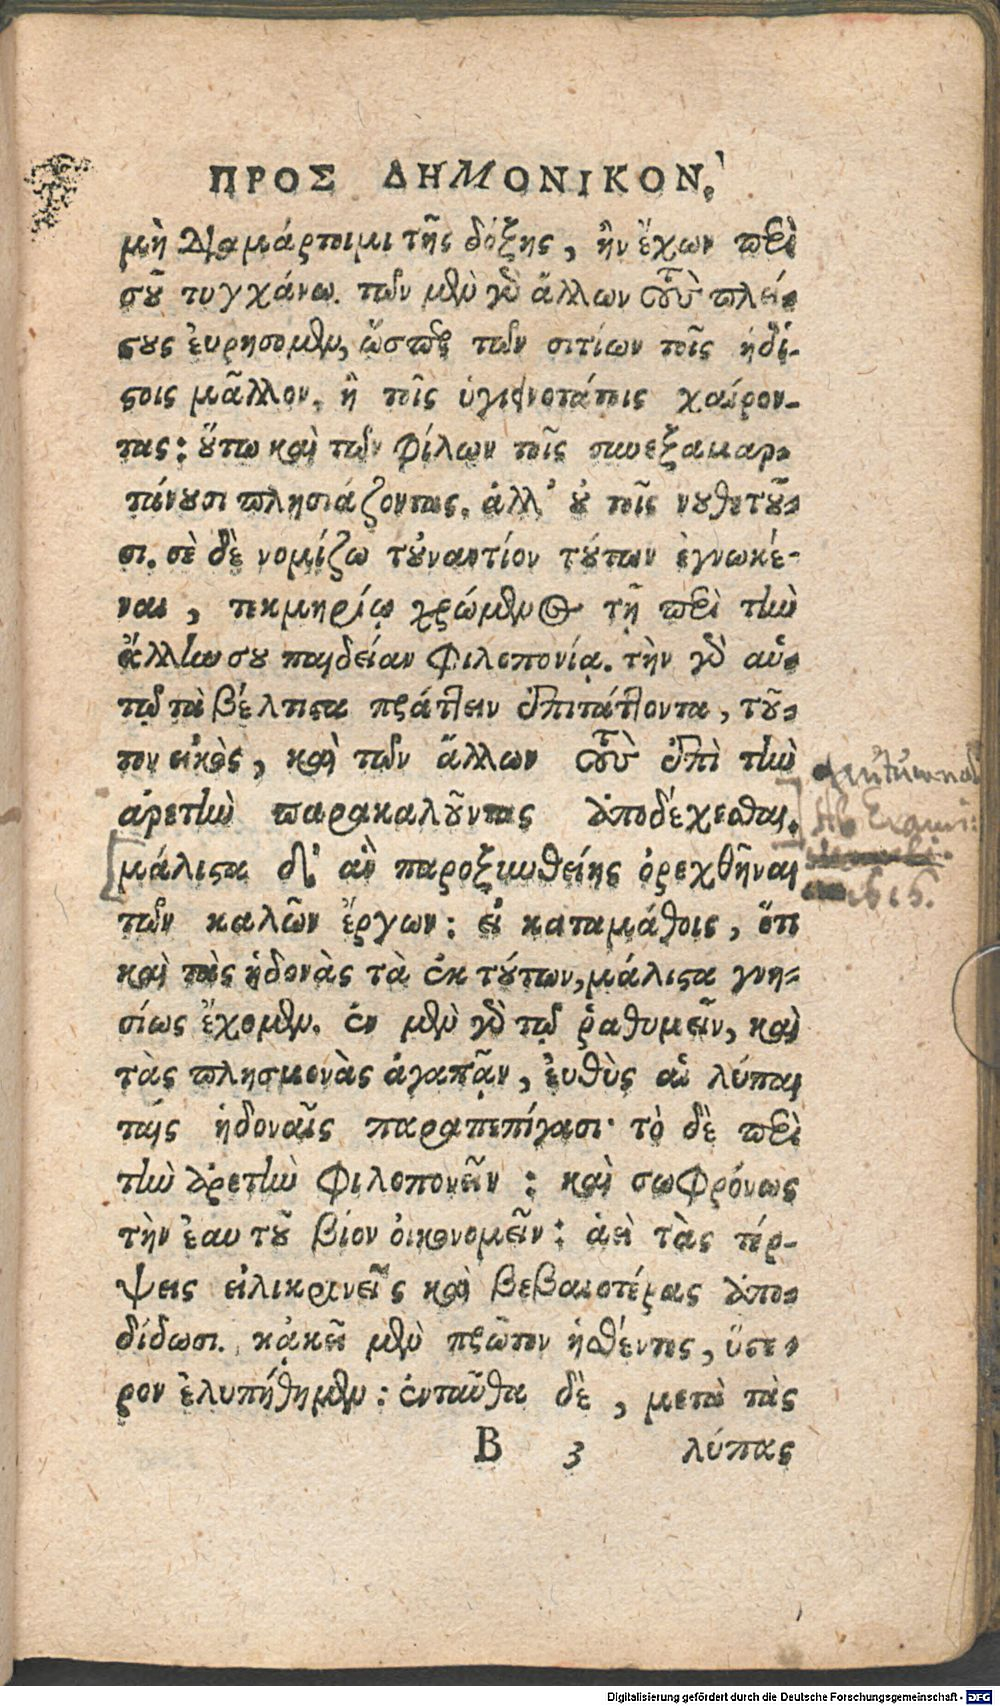 ΠΡΟΣ ΔΗΜΟΝΙΚΟΝ.
μὴ διαμάρτοιμι τῆς δόξης, ἣν ἔχων περὶ
σοῦ τυγχάνω. τῶν μὲν γὸ ἄλλων τοὺς πλεί-
στους ἑυρήσομεν, ὥσπερ τῶν σιτίων τοῖς ἡδί-
στοις μᾶλλον, ἢ τοῖς ὑγιεινοτάτοις χαίρον-
τας: οὕτω καὶ τῶν φίλων τοῖς συνεξαμαρ-
τάνουσι πλησιάζοντας, ἀλλ' οὐ τοῖς νουθετοῦ-
σι. σὲ δὲ νομίζω τοὐναντίον τούτων ἐγνωκέ-
ναι, τεκμηρίῳ χρώμενος τῇ περὶ τὴν
ἄλλην σου παιδείαν φιλοπονίᾳ. τὴν γὸ αὑ-
τῷ τὰ βέλτιστα πράττειν ἐπιτάττοντα, τοῦ-
τον εἰκὸς, καὶ τῶν ἄλλων τοὺς ἐπὶ τὴν
ἀρετὴν παρακαλοῦντας ἀποδέχεσθαι.
μάλιστα δ' ἂν παροξυνθείης ὀρεχθῆναι
τῶν καλῶν ἔργων: εἰ καταμάθοις, ὅτι
καὶ τὰς ἡδονὰς τὰ ἐκ τούτων, μάλιστα γνη-
σίως ἔχομεν. ἐν μὲν γὸ τῷ ῥαθυμεῖν, καὶ
τὰς πλησμονὰς ἀγαπᾷν, ἐυθὺς αἱ λύπαι
ταῖς ἡδοναῖς παραπεπήγασι· τὸ δὲ περὶ
τὴν ἀρετὴν φιλοπονεῖν: καὶ σωφρόνως
τὴν ἑαυτοῦ βίον οἰκονομεῖν: ἀεὶ τὰς τέρ-
ψεις εἰλικρινεῖς καὶ βεβαιοτέρας ἀπο-
δίδωσι. κᾀκεῖ μὲν πρῶτον ἡσθέντες, ὕστε-
ρον ἐλυπήθημεν: ἐνταῦθα δὲ, μετὰ τὰς
Β 3 λύπας
Digitalisierung gefördert durch die Deutsche Forschungsgemeinschaft - DFG